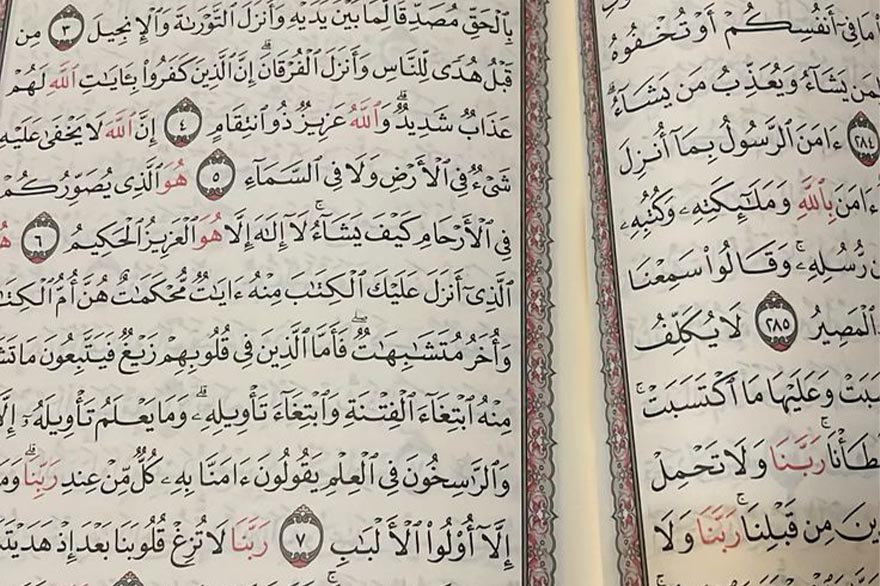 مَا فِىٓ أَنفُسِكُمْ أَوْ تُخْفُوهُ
لِمَن يَشَآءُ وَيُعَذِّبُ مَن يَشَآءُ ۗ
٢٨٤ ءَامَنَ ٱلرَّسُولُ بِمَآ أُنزِلَ
ءَامَنَ بِٱللَّهِ وَمَلَٰٓئِكَتِهِۦ وَكُتُبِهِۦ
رُّسُلِهِۦ ۚ وَقَالُوا۟ سَمِعْنَا
ٱلْمَصِيرُ ٢٨٥ لَا يُكَلِّفُ
وَعَلَيْهَا مَا ٱكْتَسَبَتْ ۗ
رَبَّنَا وَلَا تَحْمِلْ
مِن قَبْلِنَا ۚ رَبَّنَا وَلَا
بِٱلْحَقِّ مُصَدِّقًا لِّمَا بَيْنَ يَدَيْهِ وَأَنزَلَ ٱلتَّوْرَىٰةَ وَٱلْإِنجِيلَ ٣ مِن
قَبْلُ هُدًى لِّلنَّاسِ وَأَنزَلَ ٱلْفُرْقَانَ ۗ إِنَّ ٱلَّذِينَ كَفَرُوا۟ بِـَٔايَٰتِ ٱللَّهِ لَهُمْ
عَذَابٌ شَدِيدٌ ۗ وَٱللَّهُ عَزِيزٌ ذُو ٱنتِقَامٍ ٤ إِنَّ ٱللَّهَ لَا يَخْفَىٰ عَلَيْهِ
شَىْءٌ فِى ٱلْأَرْضِ وَلَا فِى ٱلسَّمَآءِ ٥ هُوَ ٱلَّذِى يُصَوِّرُكُمْ
فِى ٱلْأَرْحَامِ كَيْفَ يَشَآءُ ۚ لَآ إِلَٰهَ إِلَّا هُوَ ٱلْعَزِيزُ ٱلْحَكِيمُ ٦
ٱلَّذِىٓ أَنزَلَ عَلَيْكَ ٱلْكِتَٰبَ مِنْهُ ءَايَٰتٌ مُّحْكَمَٰتٌ هُنَّ أُمُّ ٱلْكِتَٰ
وَأُخَرُ مُتَشَٰبِهَٰتٌ ۖ فَأَمَّا ٱلَّذِينَ فِى قُلُوبِهِمْ زَيْغٌ فَيَتَّبِعُونَ مَا تَشَ
مِنْهُ ٱبْتِغَآءَ ٱلْفِتْنَةِ وَٱبْتِغَآءَ تَأْوِيلِهِۦ ۗ وَمَا يَعْلَمُ تَأْوِيلَهُۥٓ إِلَّا
وَٱلرَّٰسِخُونَ فِى ٱلْعِلْمِ يَقُولُونَ ءَامَنَّا بِهِۦ كُلٌّ مِّنْ عِندِ رَبِّنَا ۗ وَمَ
إِلَّآ أُو۟لُوا۟ ٱلْأَلْبَٰبِ ٧ رَبَّنَا لَا تُزِغْ قُلُوبَنَا بَعْدَ إِذْ هَدَيْتَ